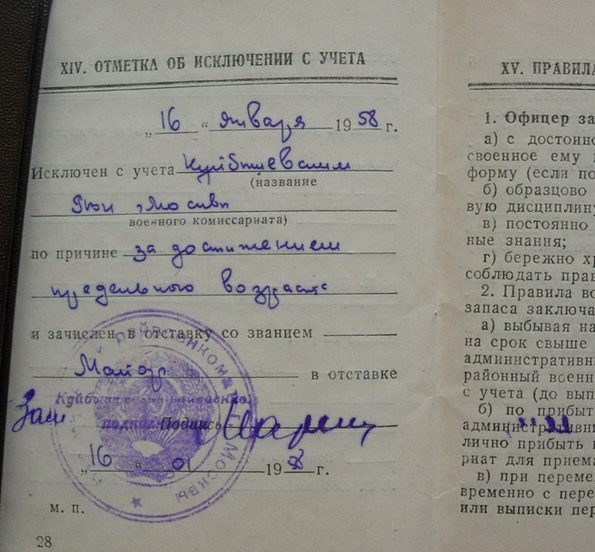 XIV. ОТМЕТКА ОБ ИСКЛЮЧЕНИИ С УЧЕТА
„16“ Января 1958 г.
Исключен с учета Куйбышевским
(название
РВК г. Москвы
военного комиссариата)
по причине за достижением
предельного возраста
и зачислен в отставку со званием
Майор в отставке
Зам
Подпись
„16“ 01 1958 г.
м. п.
28
XV. ПРАВИЛА
1. Офицер за
а) с достоин
своенное ему
форму (если по
б) образцово
вую дисциплину
в) постоянно
ные знания;
г) бережно хр
соблюдать прав
2. Правила во
запаса заключа
а) выбывая на
на срок свыше
административн
районный военн
с учета (до вып
б) по прибыт
административн
лично прибыть
риат для приема
в) при переме
временно с пере
или выписки пер